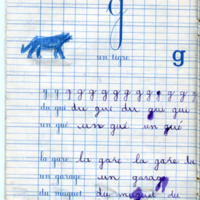 g
un tigre
g
g g g g g g g g g g g g g g g
du gui du gue du gui gui
un gué un gué un gué
la gare la gare la gare la
un garage un garage
du muguet du muguet du